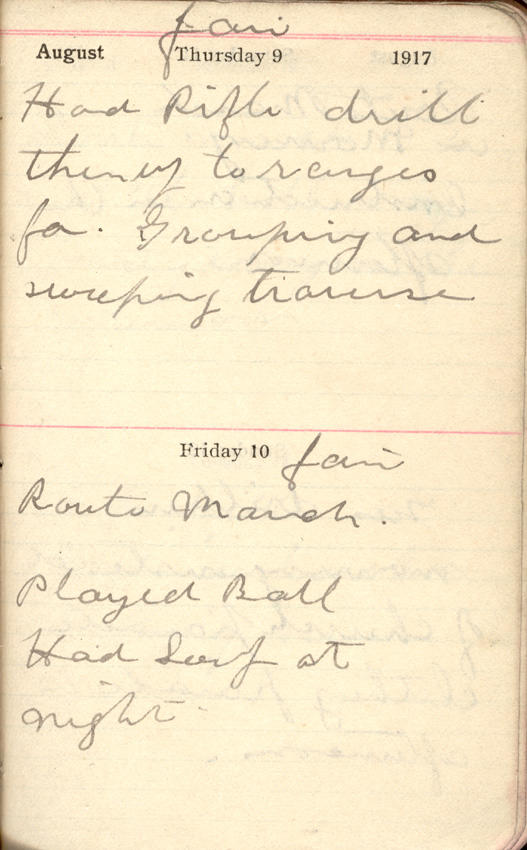 Fair
August Thursday 9 1917
Had Rifle drill
then up to ranges
for. Grouping and
sweeping traverse
Friday 10 Fair
Route March.
Played Ball
Had at
night.